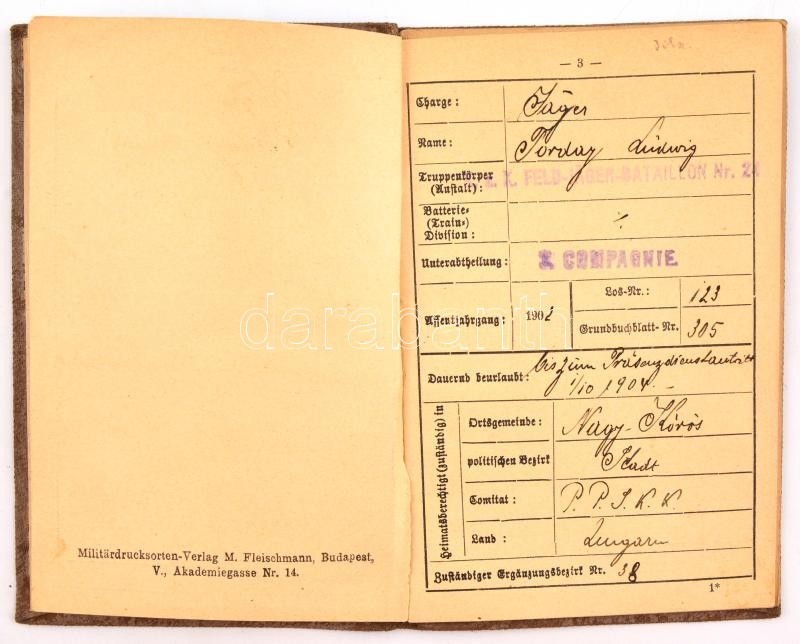 Militärdrucksorten-Verlag M. Fleischmann, Budapest,
V., Akademiegasse Nr. 14.
— 3 —
Charge: Jäger
Name: Torday Ludwig
Truppenkörper (Anstalt): K. FELD-JÄGER-BATAILLON Nr. 24
Batterie-
(Train-)
Division: ·/·
Unterabtheilung: COMPAGNIE.
Assentjahrgang: 1902
Los-Nr.: 123
Grundbuchblatt-Nr. 305
Dauernd beurlaubt: bis zum Präsenzdienstantritt
1/10 1904. –
Heimatsberechtigt (zuständig) in
Ortsgemeinde: Nagy-Körös
politischen Bezirk Stadt
Comitat: P. P. S. K. K.
Land: Ungarn
Zuständiger Ergänzungsbezirk Nr. 38
1*
darabanth